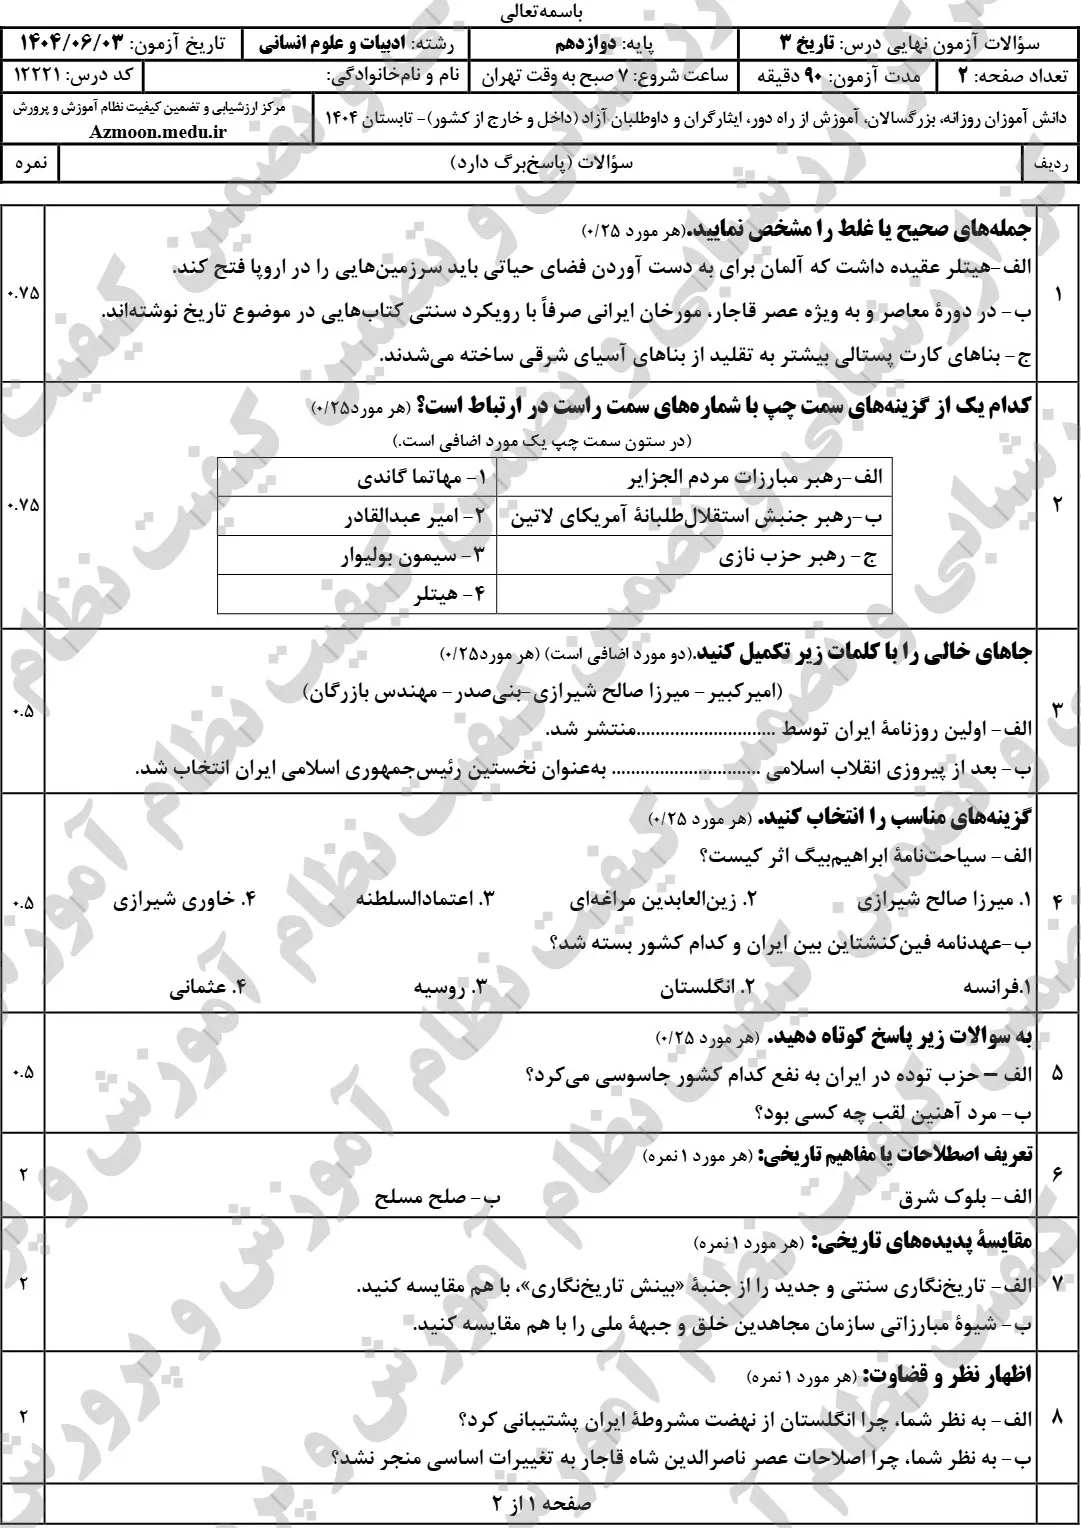 باسمه‌تعالی
سؤالات آزمون نهایی درس: تاریخ ۳
پایه: دوازدهم
رشته: ادبیات و علوم انسانی
تاریخ آزمون: ۱۴۰۴/۰۶/۰۳
تعداد صفحه: ۲
مدت آزمون: ۹۰ دقیقه
ساعت شروع: ۷ صبح به وقت تهران
نام و نام‌خانوادگی:
کد درس: ۱۲۲۲۱
دانش آموزان روزانه، بزرگسالان، آموزش از راه دور، ایثارگران و داوطلبان آزاد (داخل و خارج از کشور)- تابستان ۱۴۰۴
مرکز ارزشیابی و تضمین کیفیت نظام آموزش و پرورش
Azmoon.medu.ir
ردیف
سؤالات (پاسخ‌برگ دارد)
نمره
جمله‌های صحیح یا غلط را مشخص نمایید.(هر مورد ۰/۲۵)
الف-هیتلر عقیده داشت که آلمان برای به دست آوردن فضای حیاتی باید سرزمین‌هایی را در اروپا فتح کند.
۱
۰.۷۵
ب- در دورهٔ معاصر و به ویژه عصر قاجار، مورخان ایرانی صرفاً با رویکرد سنتی کتاب‌هایی در موضوع تاریخ نوشته‌اند.
ج- بناهای کارت پستالی بیشتر به تقلید از بناهای آسیای شرقی ساخته می‌شدند.
کدام یک از گزینه‌های سمت چپ با شماره‌های سمت راست در ارتباط است؟ (هر مورد۰/۲۵)
(در ستون سمت چپ یک مورد اضافی است.)
الف-رهبر مبارزات مردم الجزایر
۱- مهاتما گاندی
۲
۰.۷۵
ب-رهبر جنبش استقلال‌طلبانهٔ آمریکای لاتین
۲- امیر عبدالقادر
ج- رهبر حزب نازی
۳- سیمون بولیوار
۴- هیتلر
جاهای خالی را با کلمات زیر تکمیل کنید.(دو مورد اضافی است) (هر مورد۰/۲۵)
(امیرکبیر- میرزا صالح شیرازی-بنی‌صدر- مهندس بازرگان)
۳
۰.۵
الف- اولین روزنامهٔ ایران توسط .............................منتشر شد.
ب- بعد از پیروزی انقلاب اسلامی ............................... به‌عنوان نخستین رئیس‌جمهوری اسلامی ایران انتخاب شد.
گزینه‌های مناسب را انتخاب کنید. (هر مورد ۰/۲۵)
الف- سیاحت‌نامهٔ ابراهیم‌بیگ اثر کیست؟
۴
۰.۵
۱. میرزا صالح شیرازی ۲. زین‌العابدین مراغه‌ای ۳. اعتمادالسلطنه ۴. خاوری شیرازی
ب-عهدنامه فین‌کنشتاین بین ایران و کدام کشور بسته شد؟
۱.فرانسه ۲. انگلستان ۳. روسیه ۴. عثمانی
به سوالات زیر پاسخ کوتاه دهید. (هر مورد ۰/۲۵)
۵
۰.۵
الف – حزب توده در ایران به نفع کدام کشور جاسوسی می‌کرد؟
ب- مرد آهنین لقب چه کسی بود؟
تعریف اصطلاحات یا مفاهیم تاریخی: (هر مورد ۱ نمره)
۶
۲
الف- بلوک شرق ب- صلح مسلح
مقایسهٔ پدیده‌های تاریخی: (هر مورد ۱ نمره)
۷
۲
الف- تاریخ‌نگاری سنتی و جدید را از جنبهٔ «بینش تاریخ‌نگاری»، با هم مقایسه کنید.
ب- شیوهٔ مبارزاتی سازمان مجاهدین خلق و جبههٔ ملی را با هم مقایسه کنید.
اظهار نظر و قضاوت: (هر مورد ۱ نمره)
۸
۲
الف- به نظر شما، چرا انگلستان از نهضت مشروطهٔ ایران پشتیبانی کرد؟
ب- به نظر شما، چرا اصلاحات عصر ناصرالدین شاه قاجار به تغییرات اساسی منجر نشد؟
صفحه ۱ از ۲